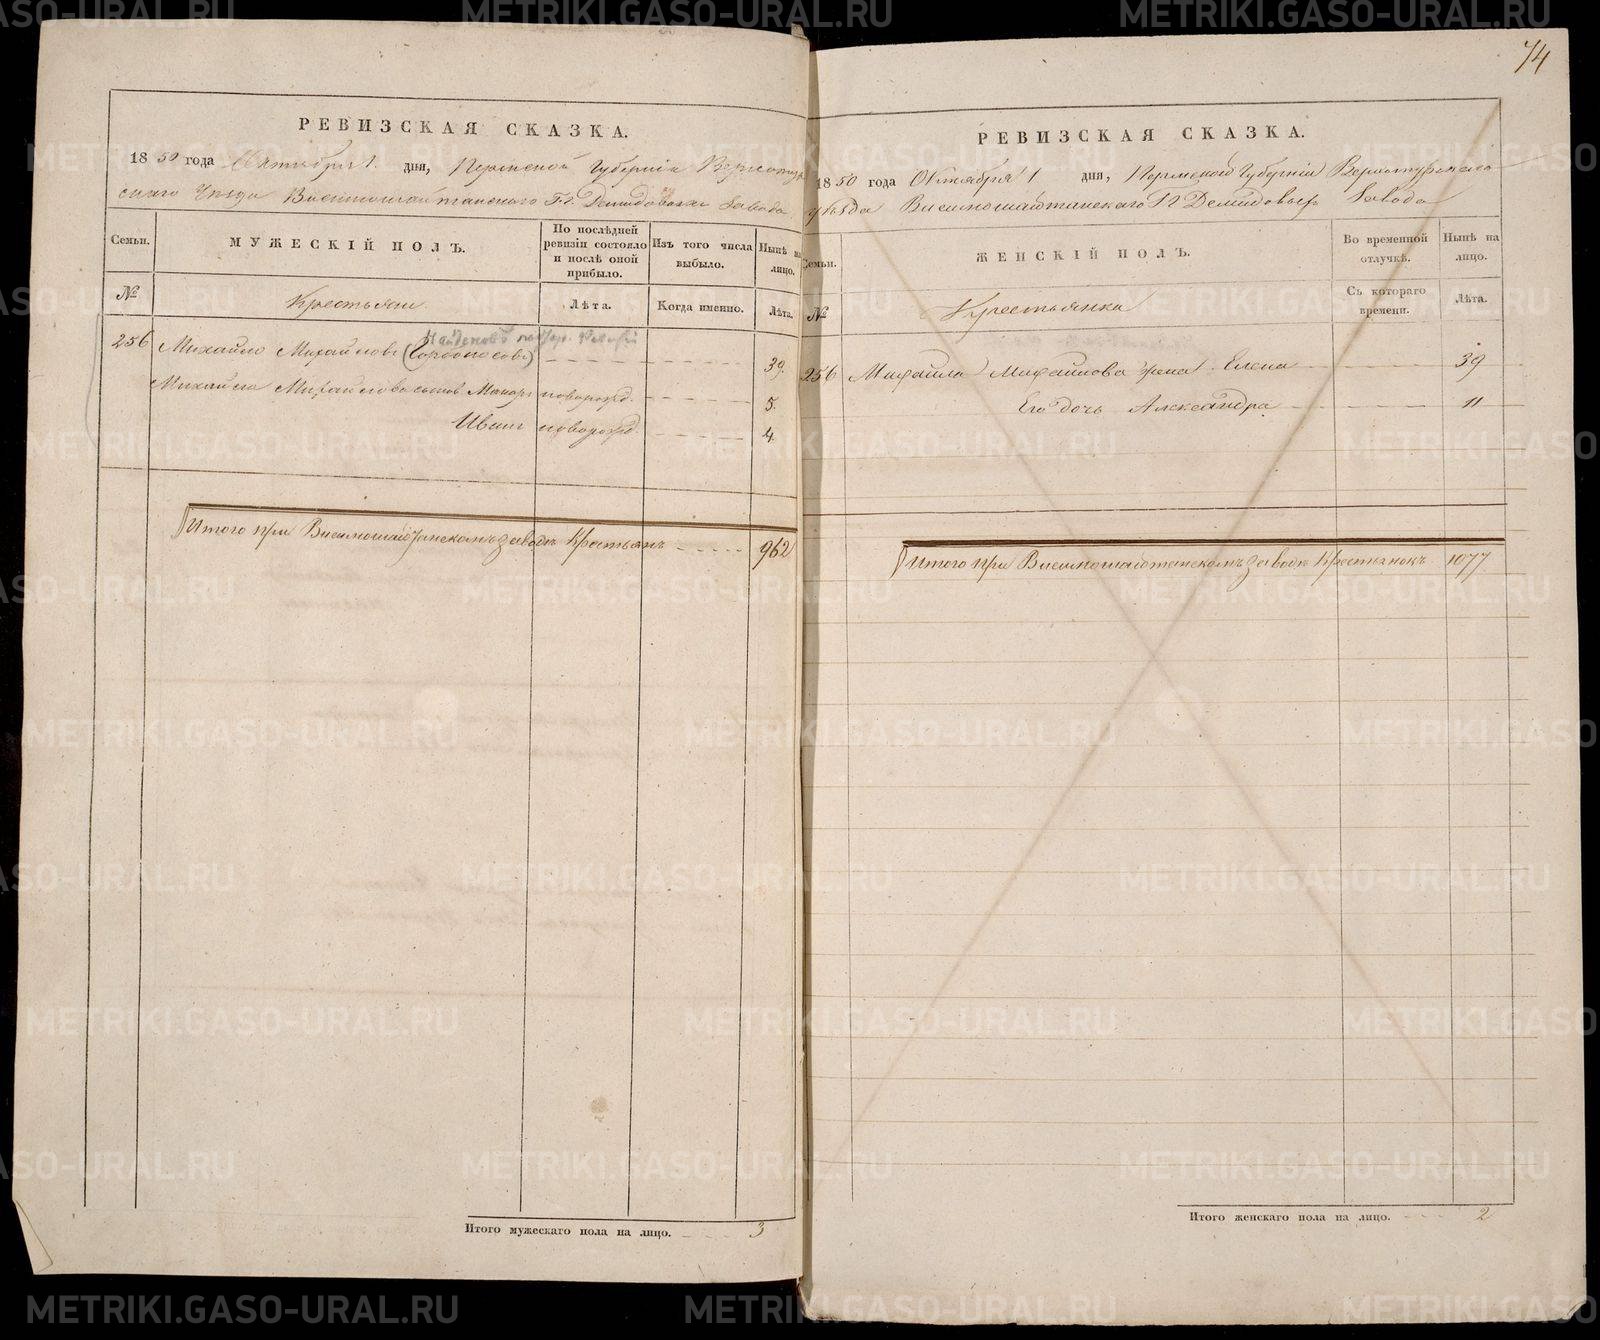 74
РЕВИЗСКАЯ СКАЗКА.
1850 года Октября 1. дня, Пермской Губерніи Верхотур
скаго Уѣзда Висимошайтанскаго Г.г. Демидовыхъ Завода
Семьи. МУЖЕСКІЙ ПОЛЪ. По послѣдней ревизіи состояло и послѣ оной прибыло. Изъ того числа выбыло. Нынѣ на лицо.
№ Крестьяне Лѣта. Когда именно. Лѣта.
256 Михайло Михайловъ (Горбоносовъ) 39.
Михайла Михайлова сынов Макар новорожд. 5.
Иванъ новорожд. 4.
Итого при Висимошайтанскомъ заводѣ Крестьянъ 962
Итого мужескаго пола на лицо. 3
РЕВИЗСКАЯ СКАЗКА.
1850 года Октября 1 дня, Пермской Губерніи Верхотурскаго
уѣзда Висимошайтанскаго Г.г. Демидовыхъ Завода
Семьи. ЖЕНСКІЙ ПОЛЪ. Во временной отлучкѣ. Нынѣ на лицо.
№ Крестьянка Съ котораго времени. Лѣта.
256 Михайла Михайлова жена Елена 39
Его дочь Александра 11
Итого при Висимошайтанскомъ заводѣ Крестьянокъ 1077.
Итого женскаго пола на лицо. 2
METRIKI.GASO-URAL.RU